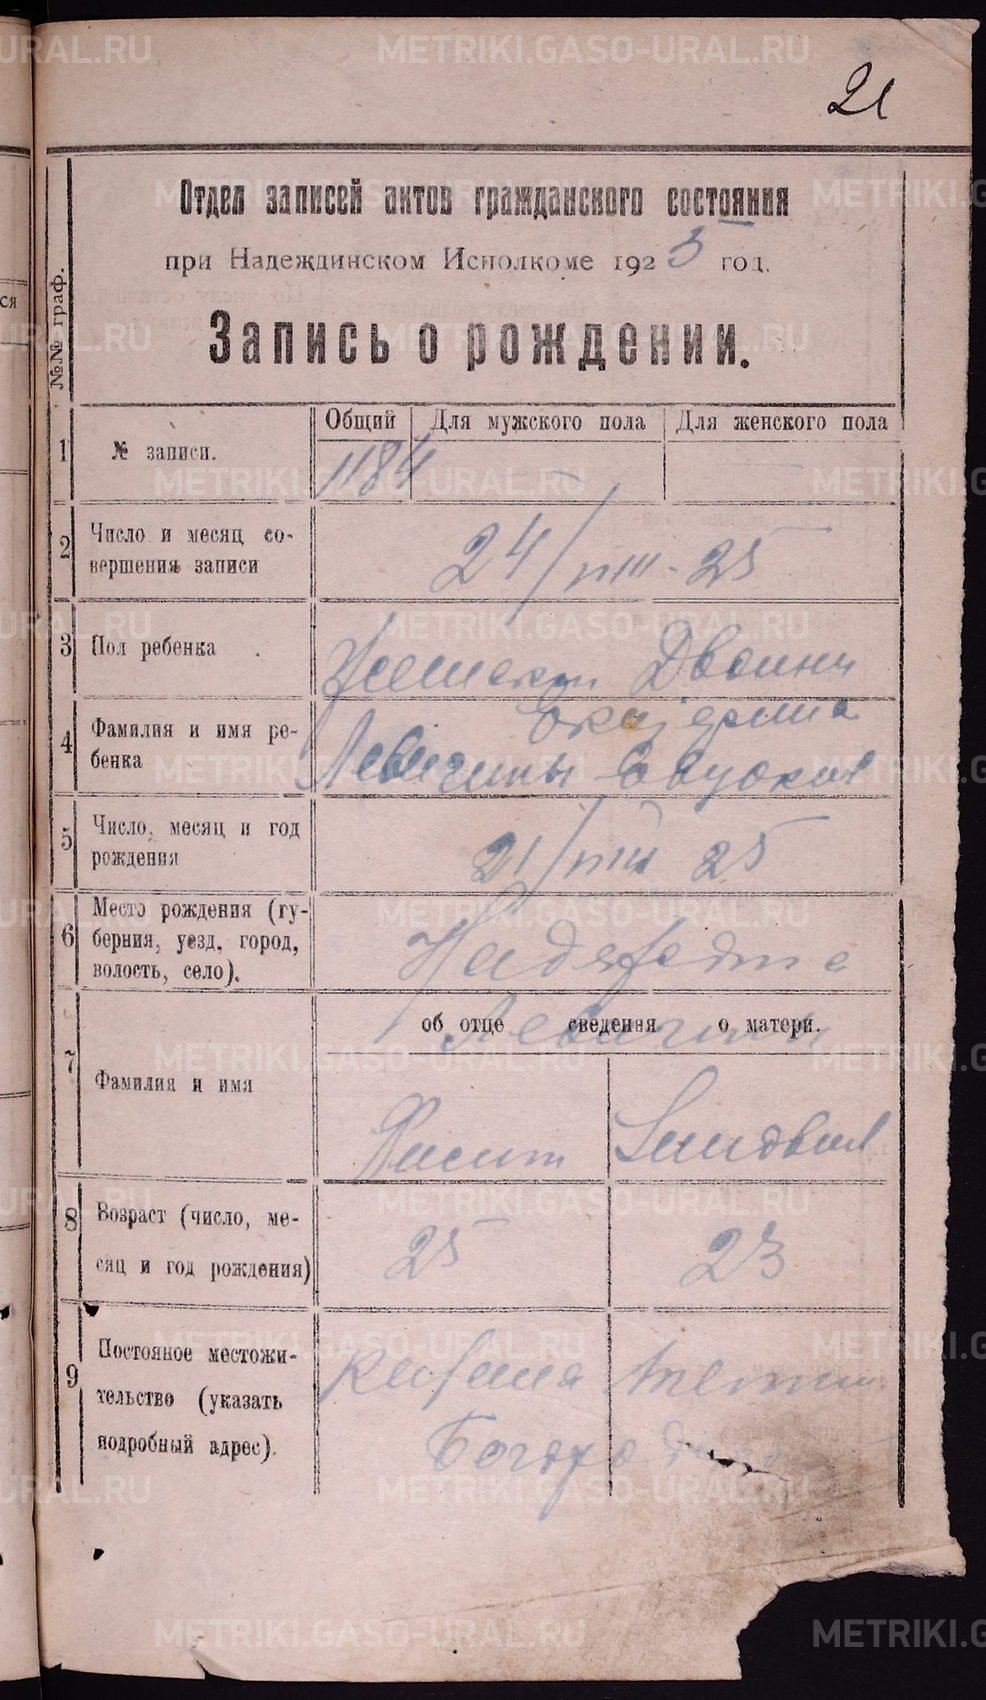 METRIKI.GASO-URAL.RU
21
Отдел записей актов гражданского состояния
при Надеждинском Исполкоме 1925 год.
Запись о рождении.
№№ граф.
Общий Для мужского пола Для женского пола
1 № записи. 1184 — —
2 Число и месяц со-
вершения записи 24/VIII-25
3 Пол ребенка Женский Двойни
4 Фамилия и имя ре-
бенка Екатерина
Левичины Евдокия
5 Число, месяц и год
рождения 21/VIII 25
6 Место рождения (гу-
берния, уезд, город,
волость, село).
об отце сведения о матери.
7 Фамилия и имя
8 Возраст (число, ме-
сяц и год рождения) 25 23
9 Постоянное местожи-
тельство (указать
подробный адрес).